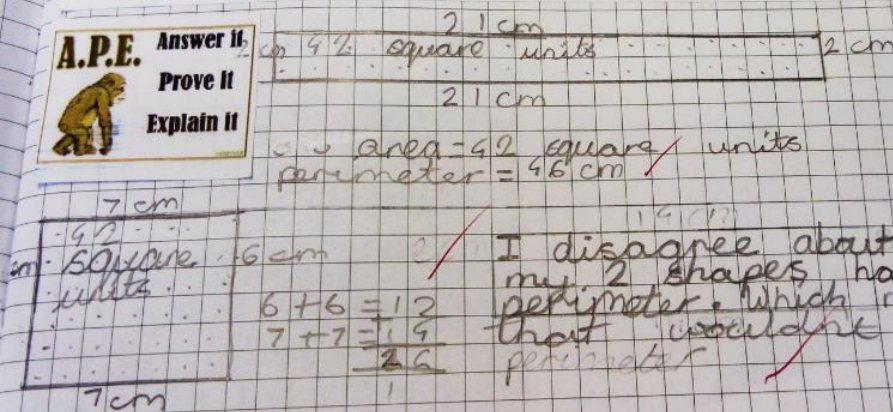 A.P.E. Answer it
Prove It
Explain it
21 cm
2 cm 42 square units 2 cm
21 cm
area = 42 square units
perimeter = 46 cm
7 cm
42
square
units
6 cm
7 cm
6 + 6 = 12
7 + 7 = 14
26
1
I disagree about
my 2 shapes ha
perymeter. Which
that wouldnt
perimeter